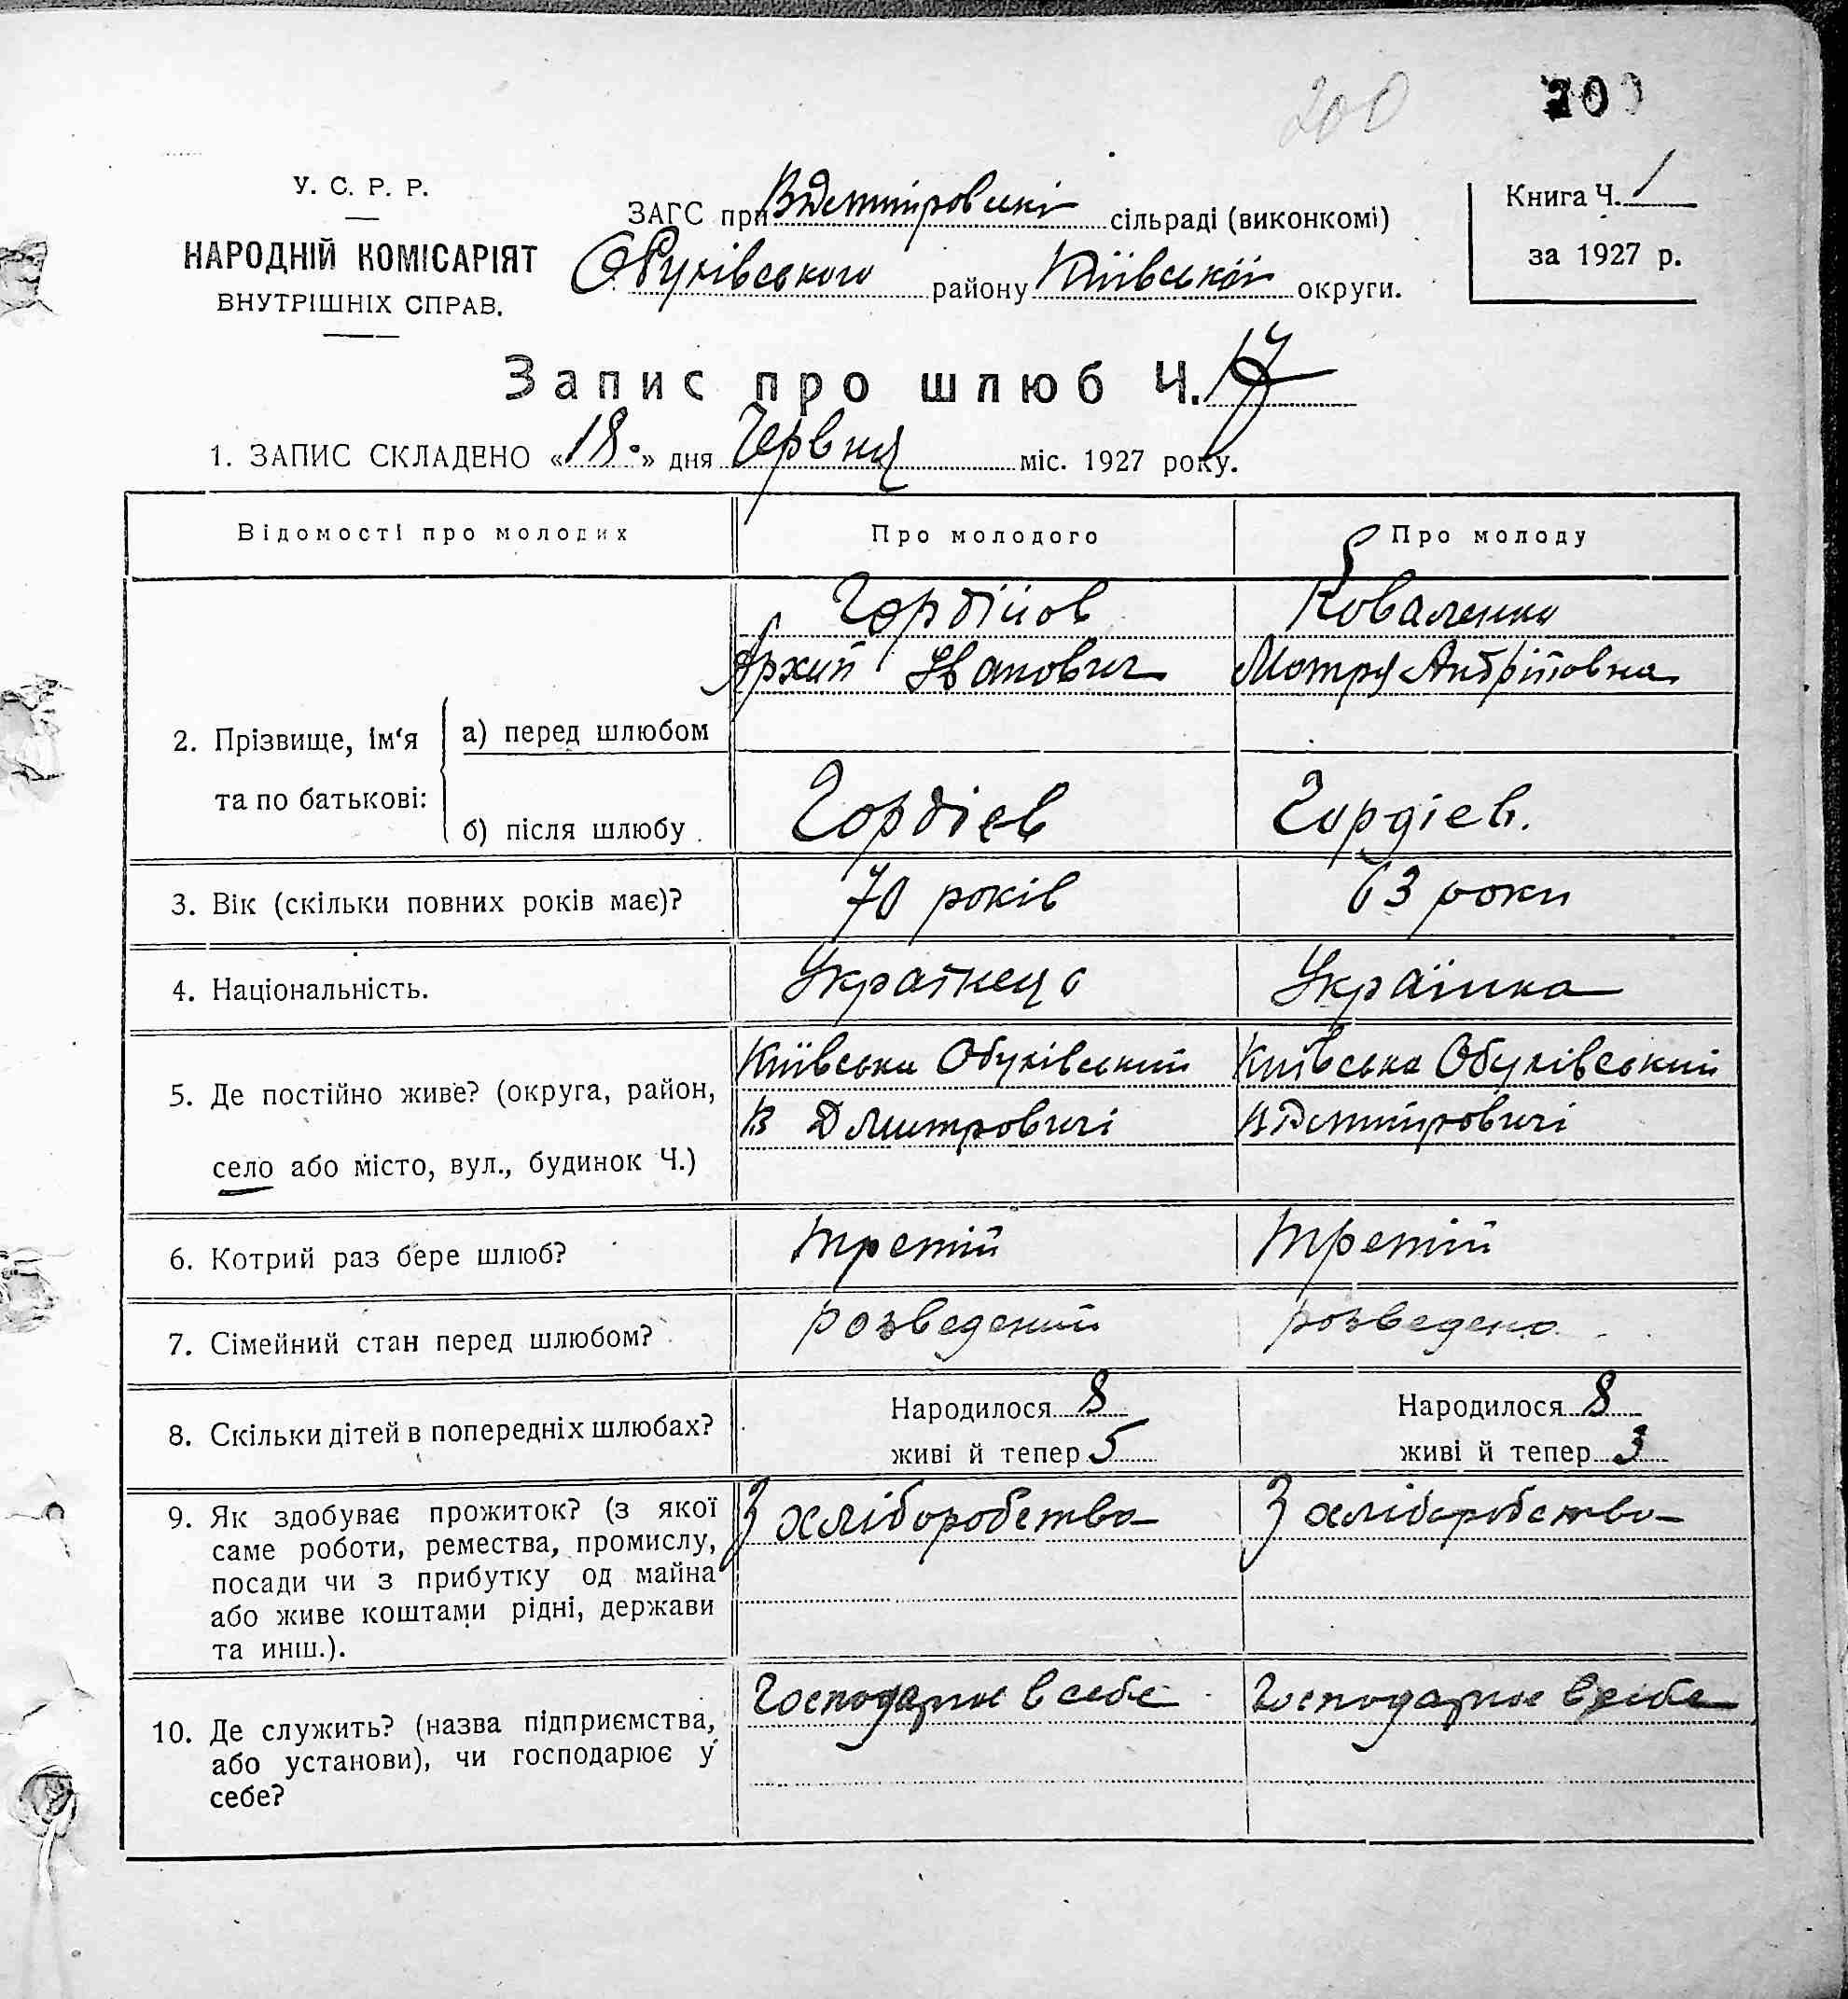 200
200
У. С. Р. Р.
ЗАГС при В Дмитровскі сільраді (виконкомі)
Книга Ч. 1
НАРОДНІЙ КОМІСАРІЯТ
Обухівського району Київськой округи.
за 1927 р.
ВНУТРІШНІХ СПРАВ.
Запис про шлюб Ч. 17
1. ЗАПИС СКЛАДЕНО «18» дня Червня міс. 1927 року.
Відомості про молодих Про молодого Про молоду
Гордійов Коваленко
Архип Іванович Мотря Андріївна
2. Прізвище, ім'я а) перед шлюбом
та по батькові:
б) після шлюбу Гордієв Гордієв.
3. Вік (скільки повних років має)? 70 років 63 роки
4. Національність. Українець Українка
Київська Обухівський Київська Обухівський
5. Де постійно живе? (округа, район, В Дмитровичі В Дмитровичі
село або місто, вул., будинок Ч.)
6. Котрий раз бере шлюб? третій третій
7. Сімейний стан перед шлюбом? розведений розведена
8. Скільки дітей в попередніх шлюбах? Народилося 8 Народилося 8
живі й тепер 5 живі й тепер 3
9. Як здобуває прожиток? (з якої З хліборобства З хліборобства
саме роботи, ремества, промислу,
посади чи з прибутку од майна
або живе коштами рідні, держави
та инш.).
Господарює в себе Господарює в себе
10. Де служить? (назва підприємства,
або установи), чи господарює у
себе?